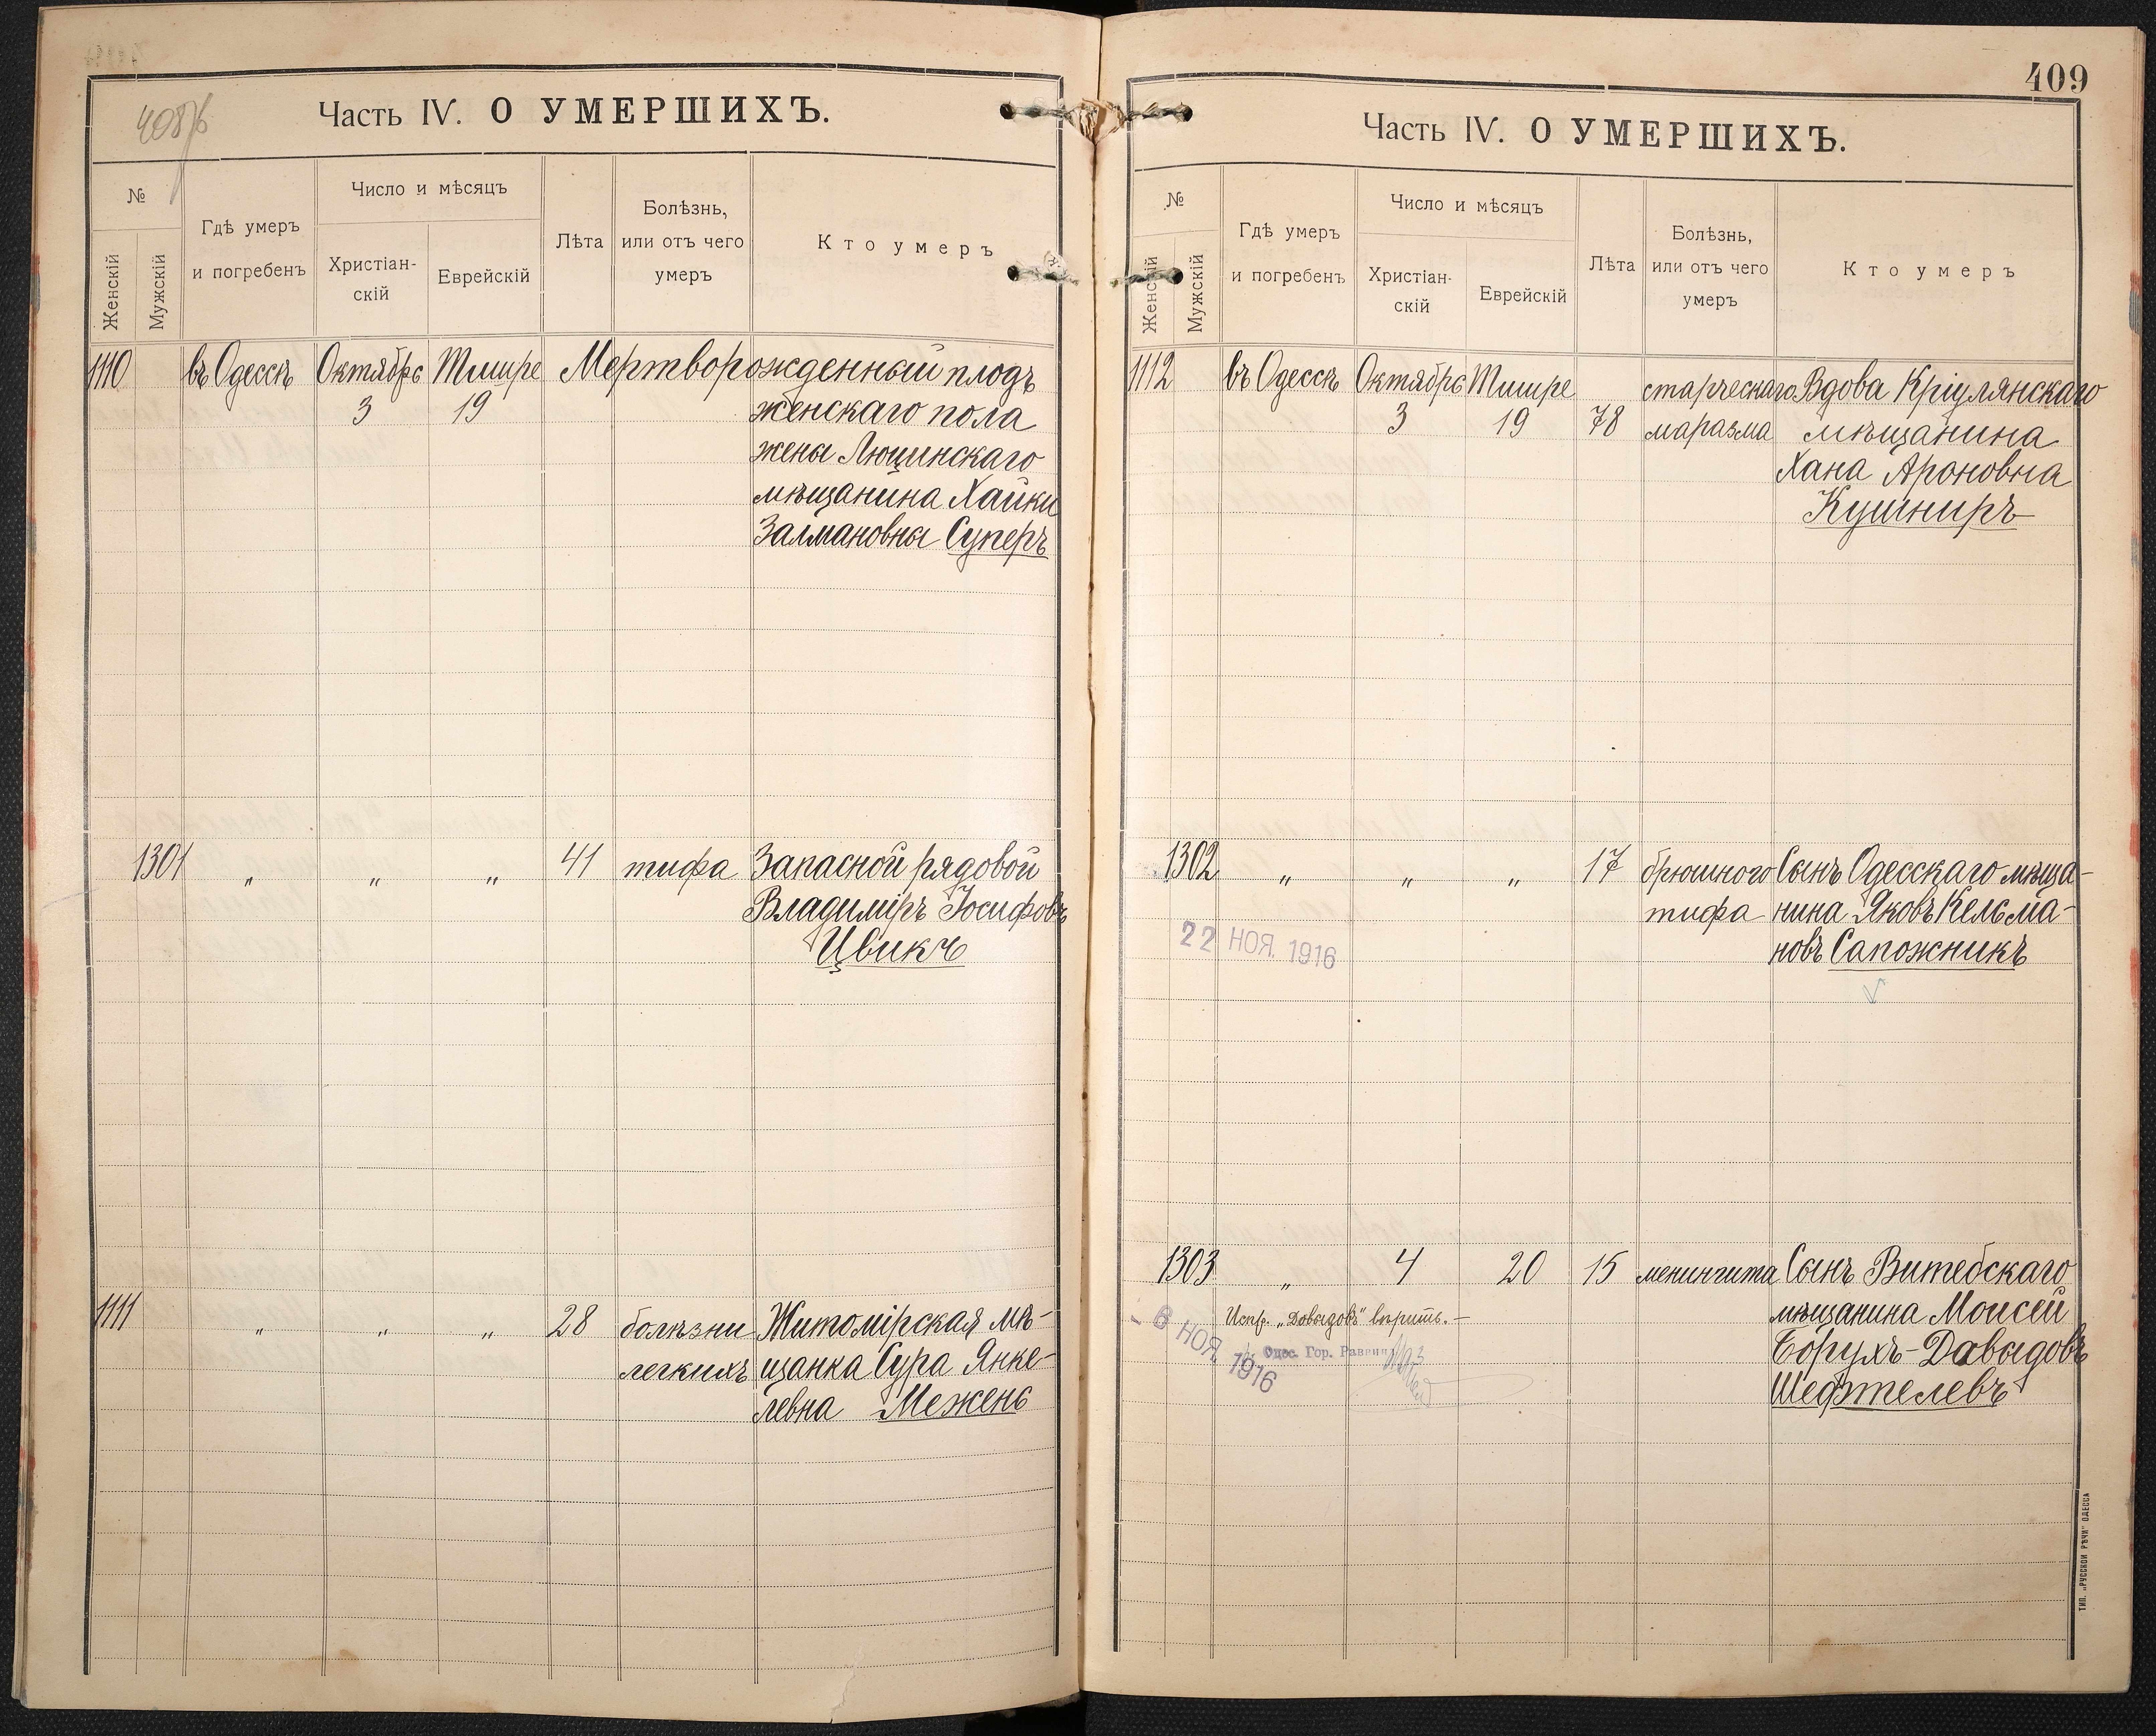 408/б
Часть IV. О УМЕРШИХЪ.
№
Женскій
Мужскій
Гдѣ умеръ
и погребенъ
Число и мѣсяцъ
Христіан-
скій
Еврейскій
Лѣта
Болѣзнь,
или отъ чего
умеръ
Кто умеръ
1110 въ Одессѣ Октябрь Тишре Мертворожденный плодъ
3 19 женскаго пола
жены Люцинскаго
мѣщанина Хайки
Залмановны Суперъ
1301 " " " 41 тифа Запасной рядовой
Владиміръ Іосифовъ
Цвикъ
1111 " " " 28 болѣзни Житомірская мѣ-
легкихъ щанка Сура Янке-
левна Межень
409
Часть IV. О УМЕРШИХЪ.
№
Женскій
Мужскій
Гдѣ умеръ
и погребенъ
Число и мѣсяцъ
Христіан-
скій
Еврейскій
Лѣта
Болѣзнь,
или отъ чего
умеръ
Кто умеръ
1112 въ Одессѣ Октябрь Тишре старческаго Вдова Кріулянскаго
3 19 78 маразма мѣщанина
Хана Ароновна
Кушниръ
1302 " " " 17 брюшного Сынъ Одесскаго мѣща-
тифа нина Яковъ Кельма-
22 НОЯ. 1916
новъ Сапожникъ
1303 " 4 20 15 менингита Сынъ Витебскаго
Испр. „Давыдовъ" вѣрить.— мѣщанина Моисей
- 6 НОЯ. 1916
Одес. Гор. Раввинъ
Борухъ-Давыдовъ
Шефтелевъ
ТИП. „РУССКОЙ РѢЧИ" ОДЕССА